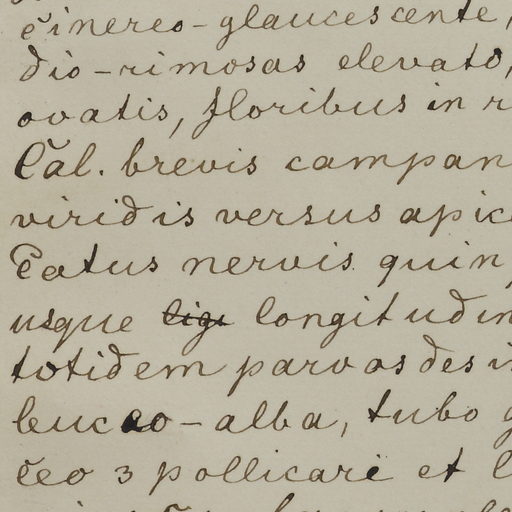 cinereo-glaucescente,
dio-rimosas elevato,
ovatis, floribus in r
Cal. brevis campan
viridis versus apic
catus nervis quin
usque longitudin
totidem parvas desi
leuceo-alba, tubo g
ceo 3 pollicari et l